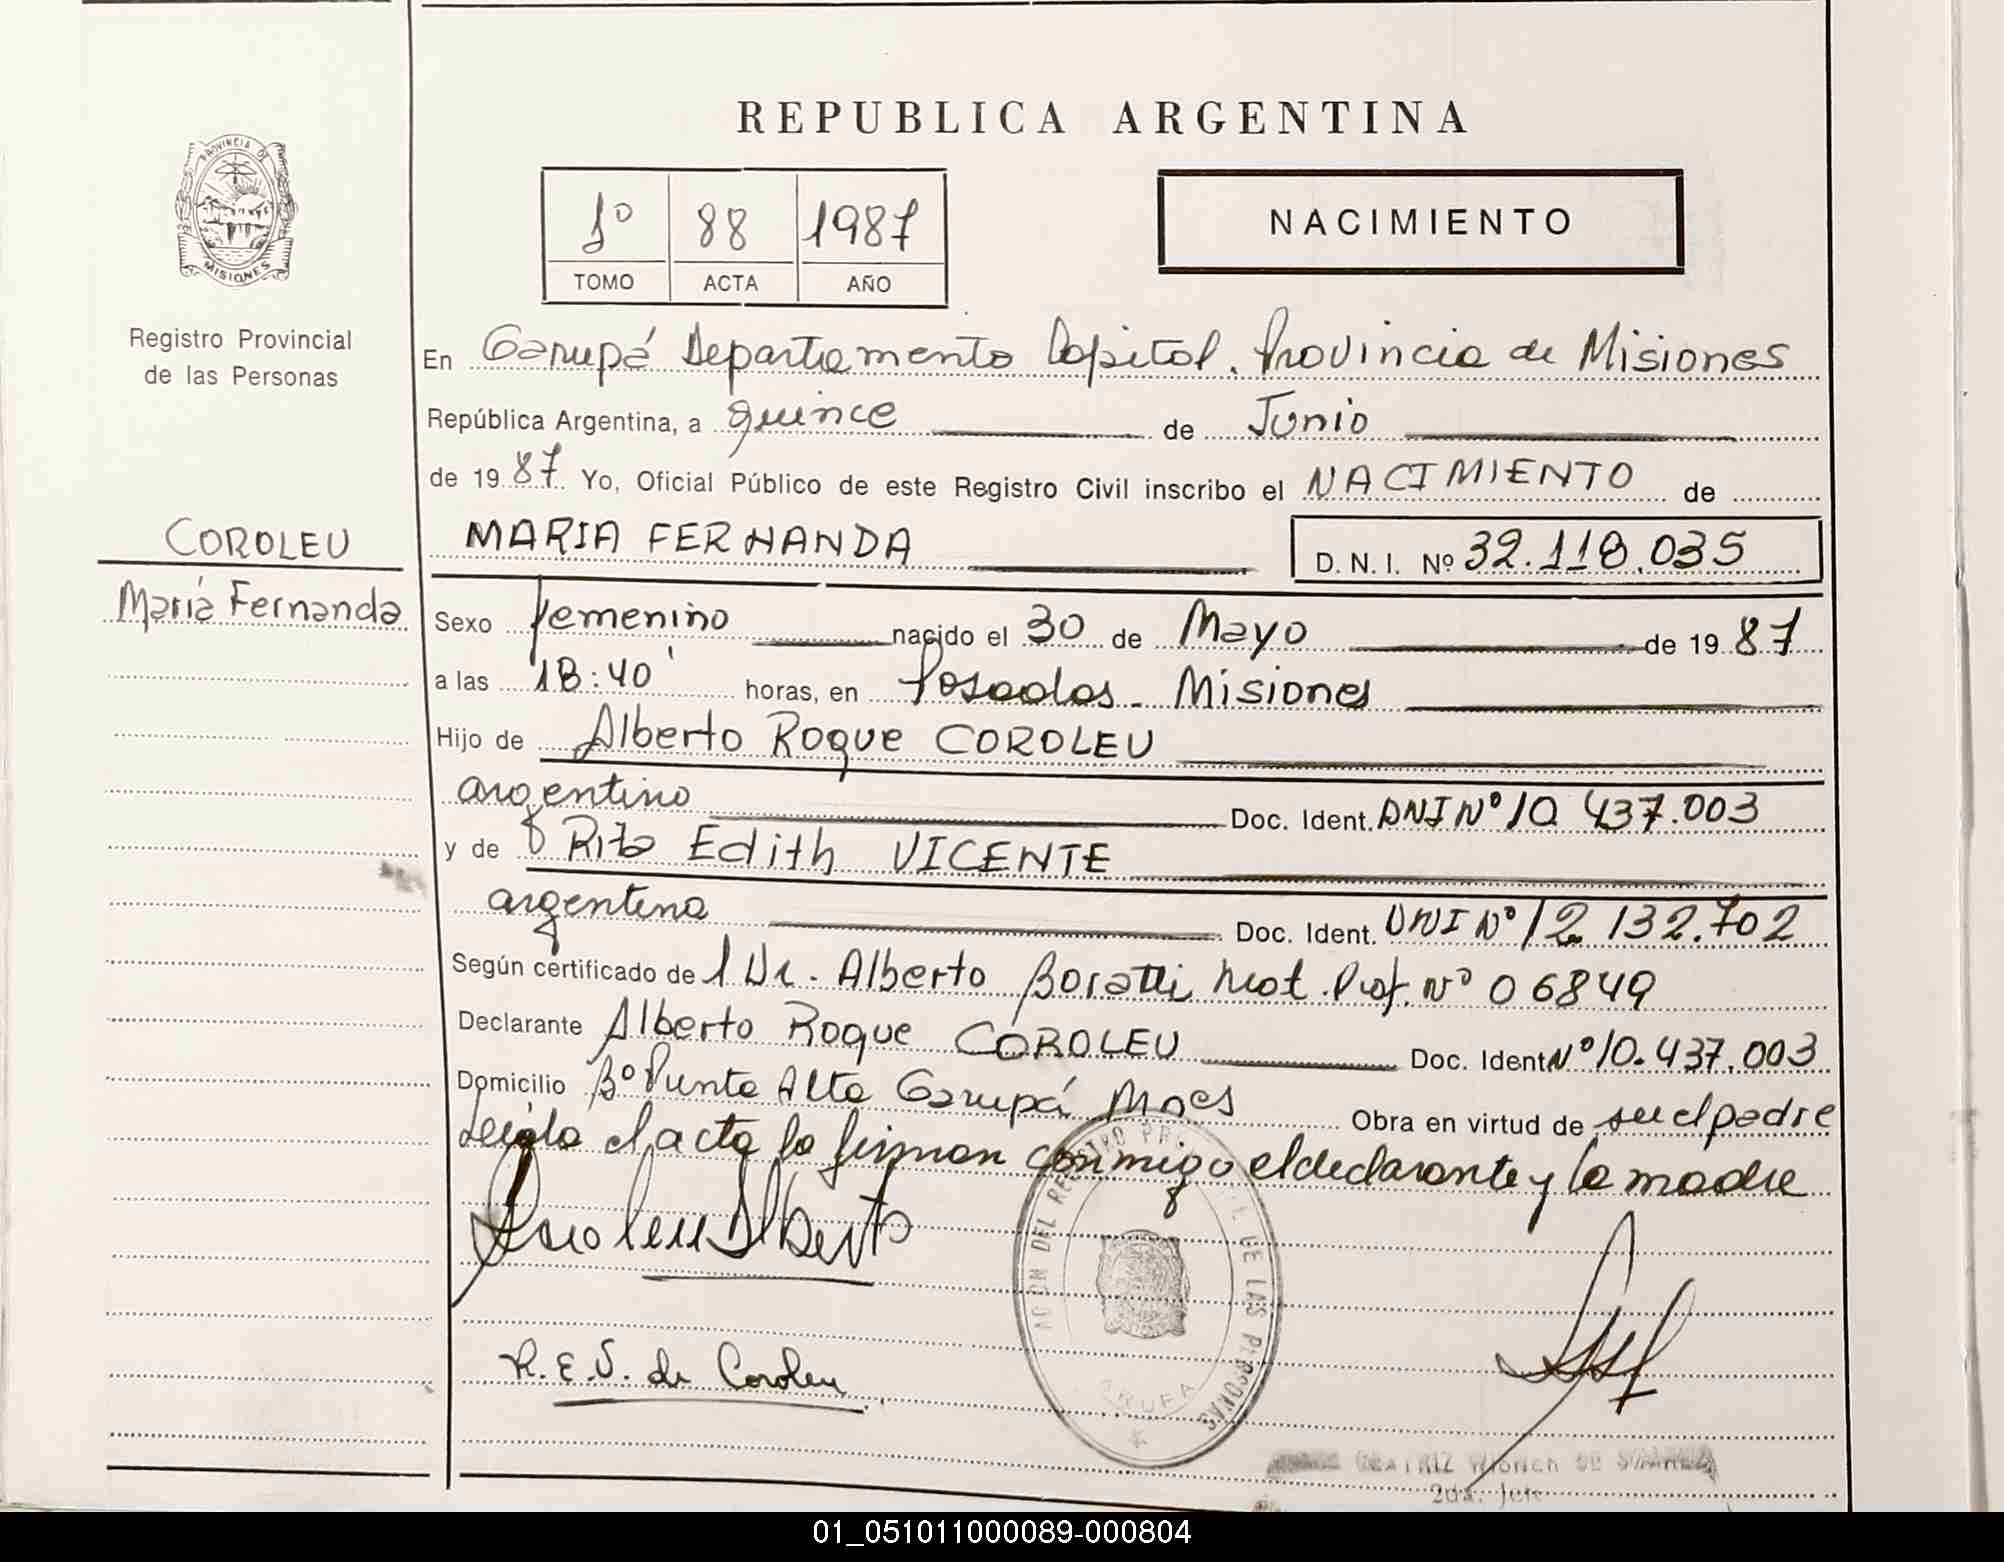 REPUBLICA ARGENTINA
PROVINCIA DE
MISIONES
1º 88 1987
TOMO ACTA AÑO
NACIMIENTO
Registro Provincial
de las Personas
En Garupá Departamento Capital. Provincia de Misiones
República Argentina, a quince de Junio
de 1987 Yo, Oficial Público de este Registro Civil inscribo el NACIMIENTO de
COROLEU
María Fernanda
MARIA FERNANDA D. N. I. Nº 32.118.035
Sexo femenino nacido el 30 de Mayo de 1987
a las 18:40' horas, en Posadas - Misiones
Hijo de Alberto Roque COROLEU
argentino Doc. Ident. DNI Nº 10.437.003
y de Rita Edith VICENTE
argentina Doc. Ident. DNI Nº 12.132.702
Según certificado del Dr. Alberto Boratti Mat. Prof. Nº 06849
Declarante Alberto Roque COROLEU Doc. Ident Nº 10.437.003
Domicilio Bº Punta Alta Garupá Mnes Obra en virtud de ser el padre
Leída el acta la firman conmigo el declarante y la madre
Coroleu Alberto
DEL REGISTRO DE LAS PERSONAS
R.E.V. de Coroleu
BEATRIZ DE
2da. Jefe
01_051011000089-000804